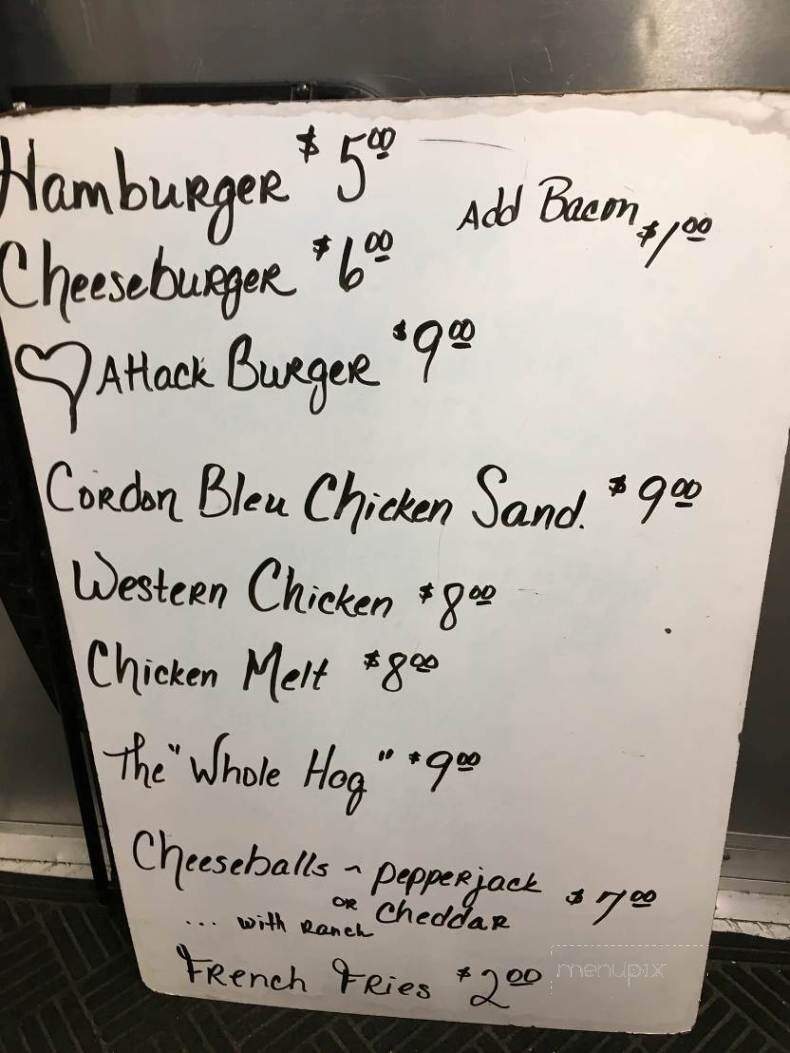 Hamburger $5.00
Add Bacon $1.00
Cheeseburger $6.00
♡ Attack Burger $9.00
Cordon Bleu Chicken Sand. $9.00
Western Chicken $8.00
Chicken Melt $8.00
The "Whole Hog" $9.00
Cheeseballs ~ Pepperjack $7.00
or Cheddar
... with Ranch
French Fries $2.00
menupix